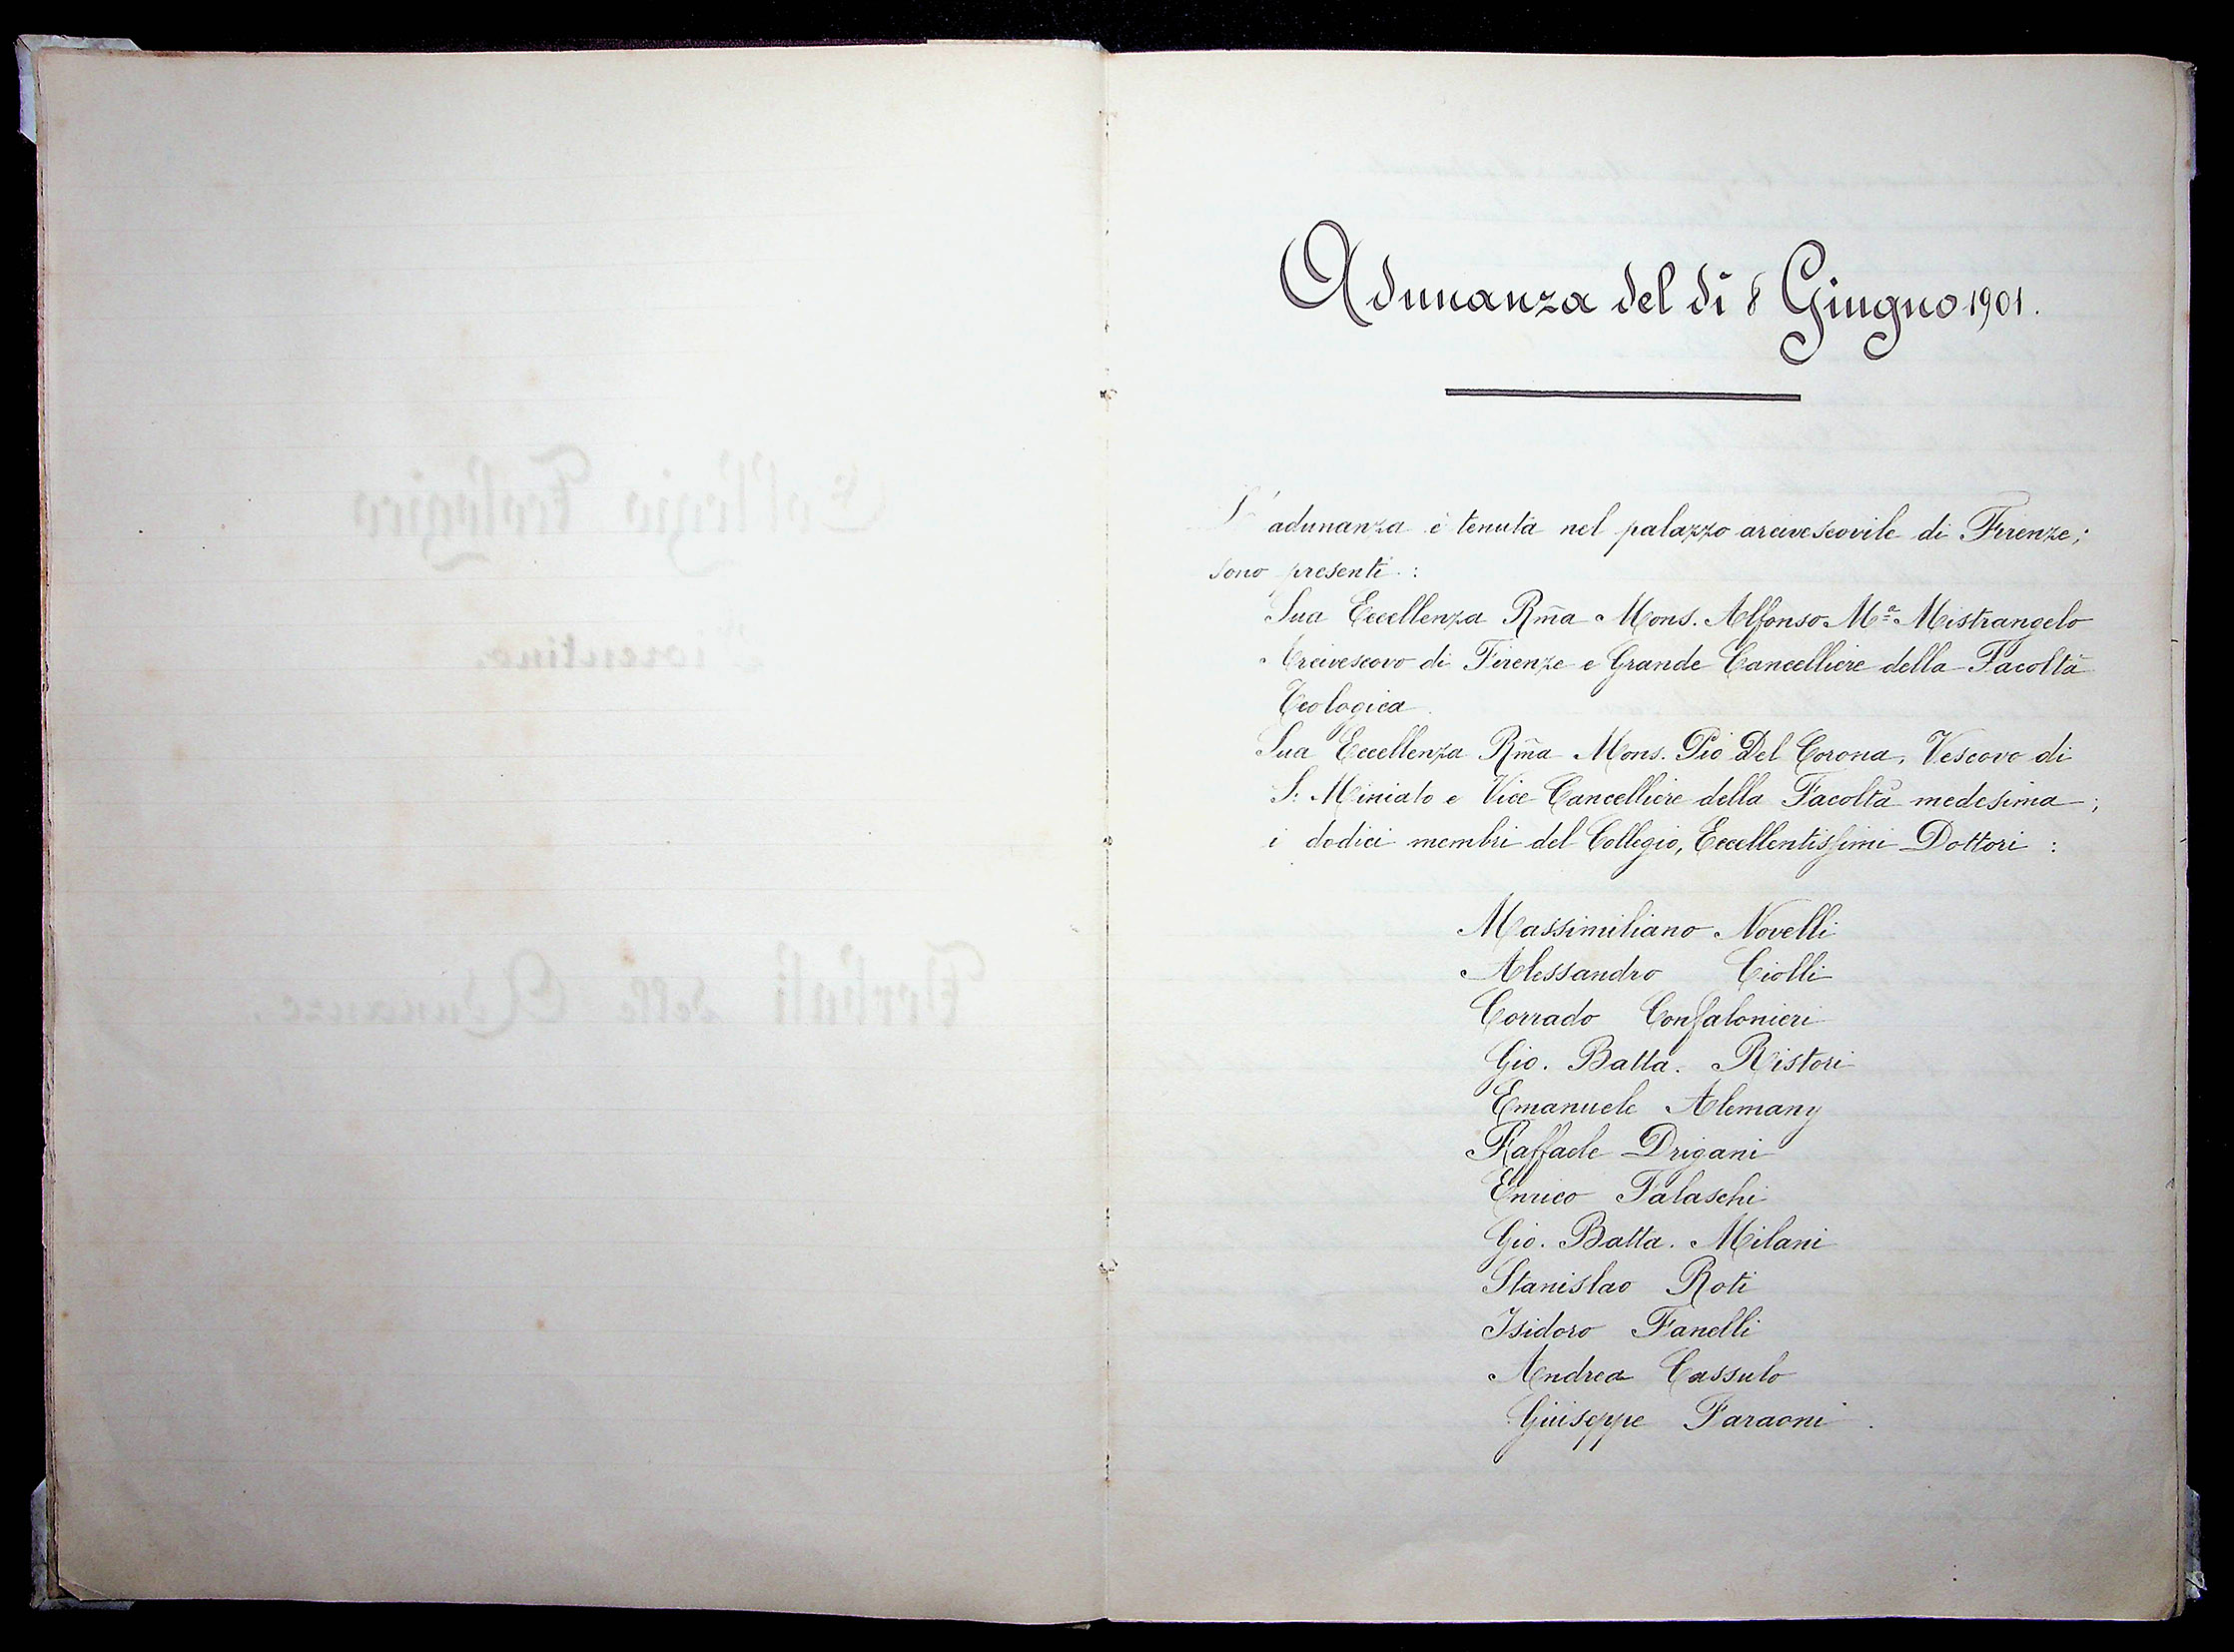 Adunanza del dì 8 Giugno 1901.
L' adunanza è tenuta nel palazzo arcivescovile di Firenze;
sono presenti :
Sua Eccellenza Rm̃a Mons. Alfonso Mª Mistrangelo
Arcivescovo di Firenze e Grande Cancelliere della Facoltà
Teologica.
Sua Eccellenza Rm̃a Mons. Pio Del Corona, Vescovo di
S. Miniato e Vice Cancelliere della Facoltà medesima;
i dodici membri del Collegio, Eccellentissimi Dottori :
Massimiliano Novelli
Alessandro Ciolli
Corrado Confalonieri
Gio. Batta. Ristori
Emanuele Alemany
Raffaele Drigani
Enrico Falaschi
Gio. Batta. Milani
Stanislao Roti
Isidoro Fanelli
Andrea Cassulo
Giuseppe Faraoni.